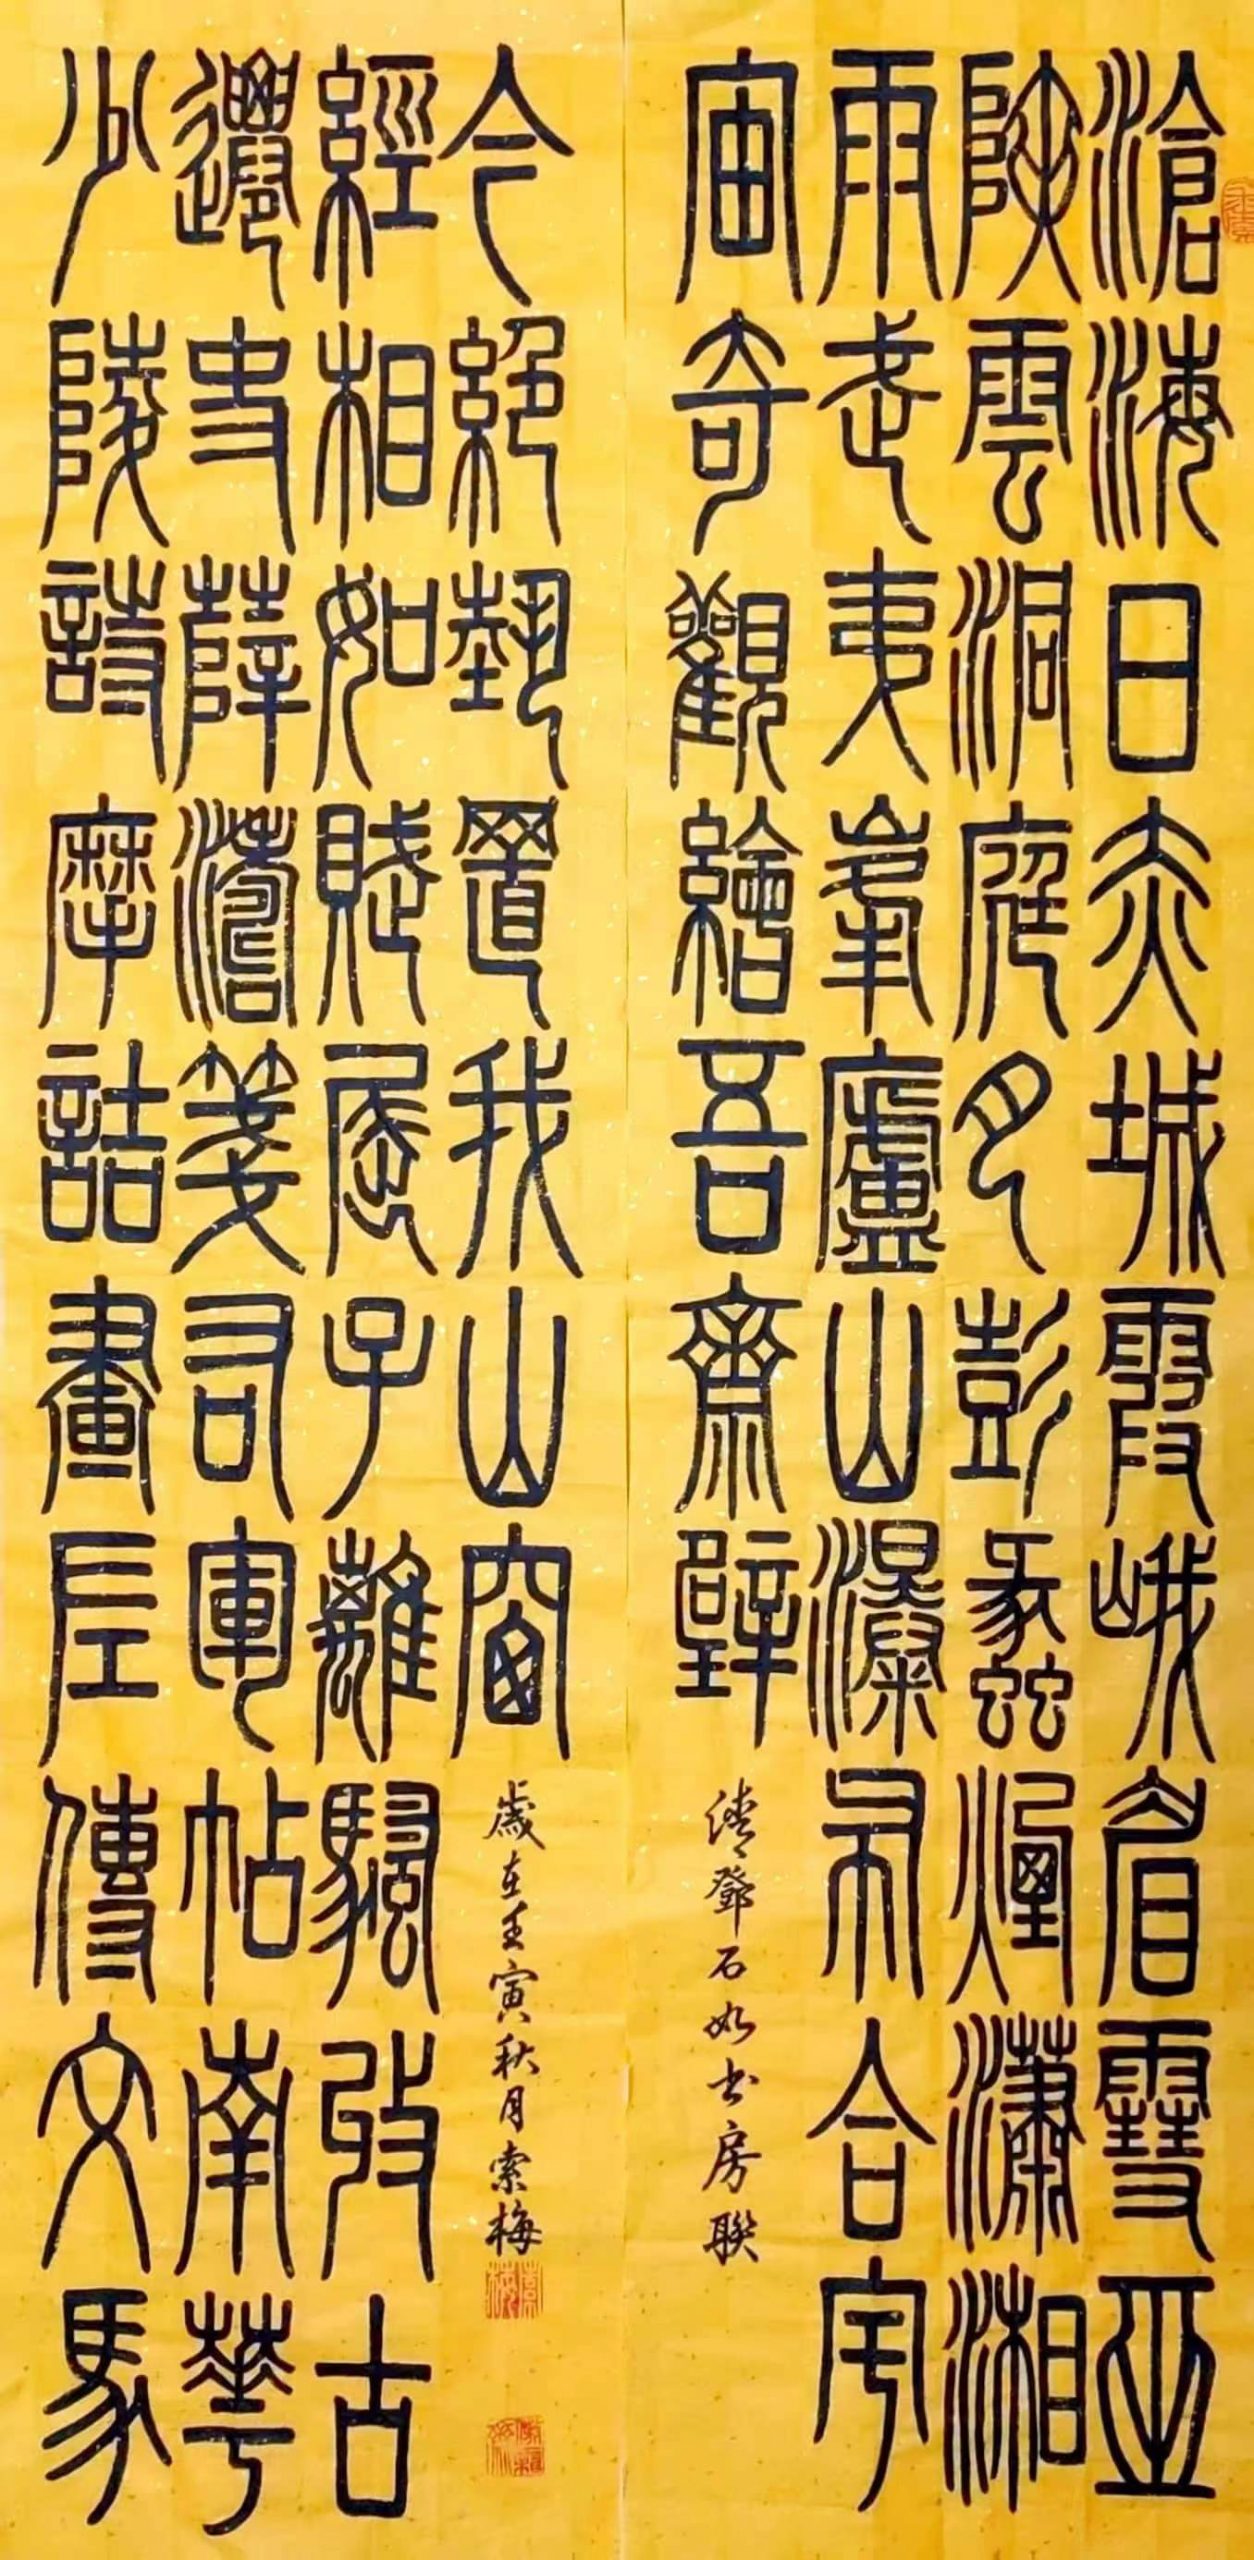 滄海日赤城霞峨眉雪巫
峽雲洞庭月彭蠡煙瀟湘
雨武夷峯廬山瀑布合宇
宙奇觀繪吾齋壁
清鄧石如書房聯
少陵詩摩詰畫左傳文馬
遷史薛濤箋右軍帖南華
經相如賦屈子離騷收古
今絕藝置我山窗
歲在壬寅秋月索梅